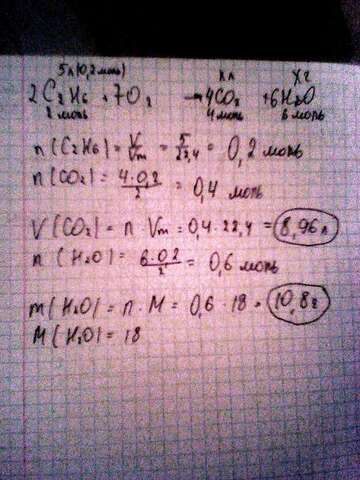 5л(0,2моль) хл хг
2C₂H₆ + 7O₂ → 4CO₂ + 6H₂O
2 моль 4 моль 6 моль
n(C₂H₆) = V/Vm = 5/22,4 = 0,2 моль
n(CO₂) = 4·0,2/2 = 0,4 моль
V(CO₂) = n · Vm = 0,4 · 22,4 = 8,96 л
n(H₂O) = 6·0,2/2 = 0,6 моль
m(H₂O) = n · M = 0,6 · 18 = 10,8 г
M(H₂O) = 18